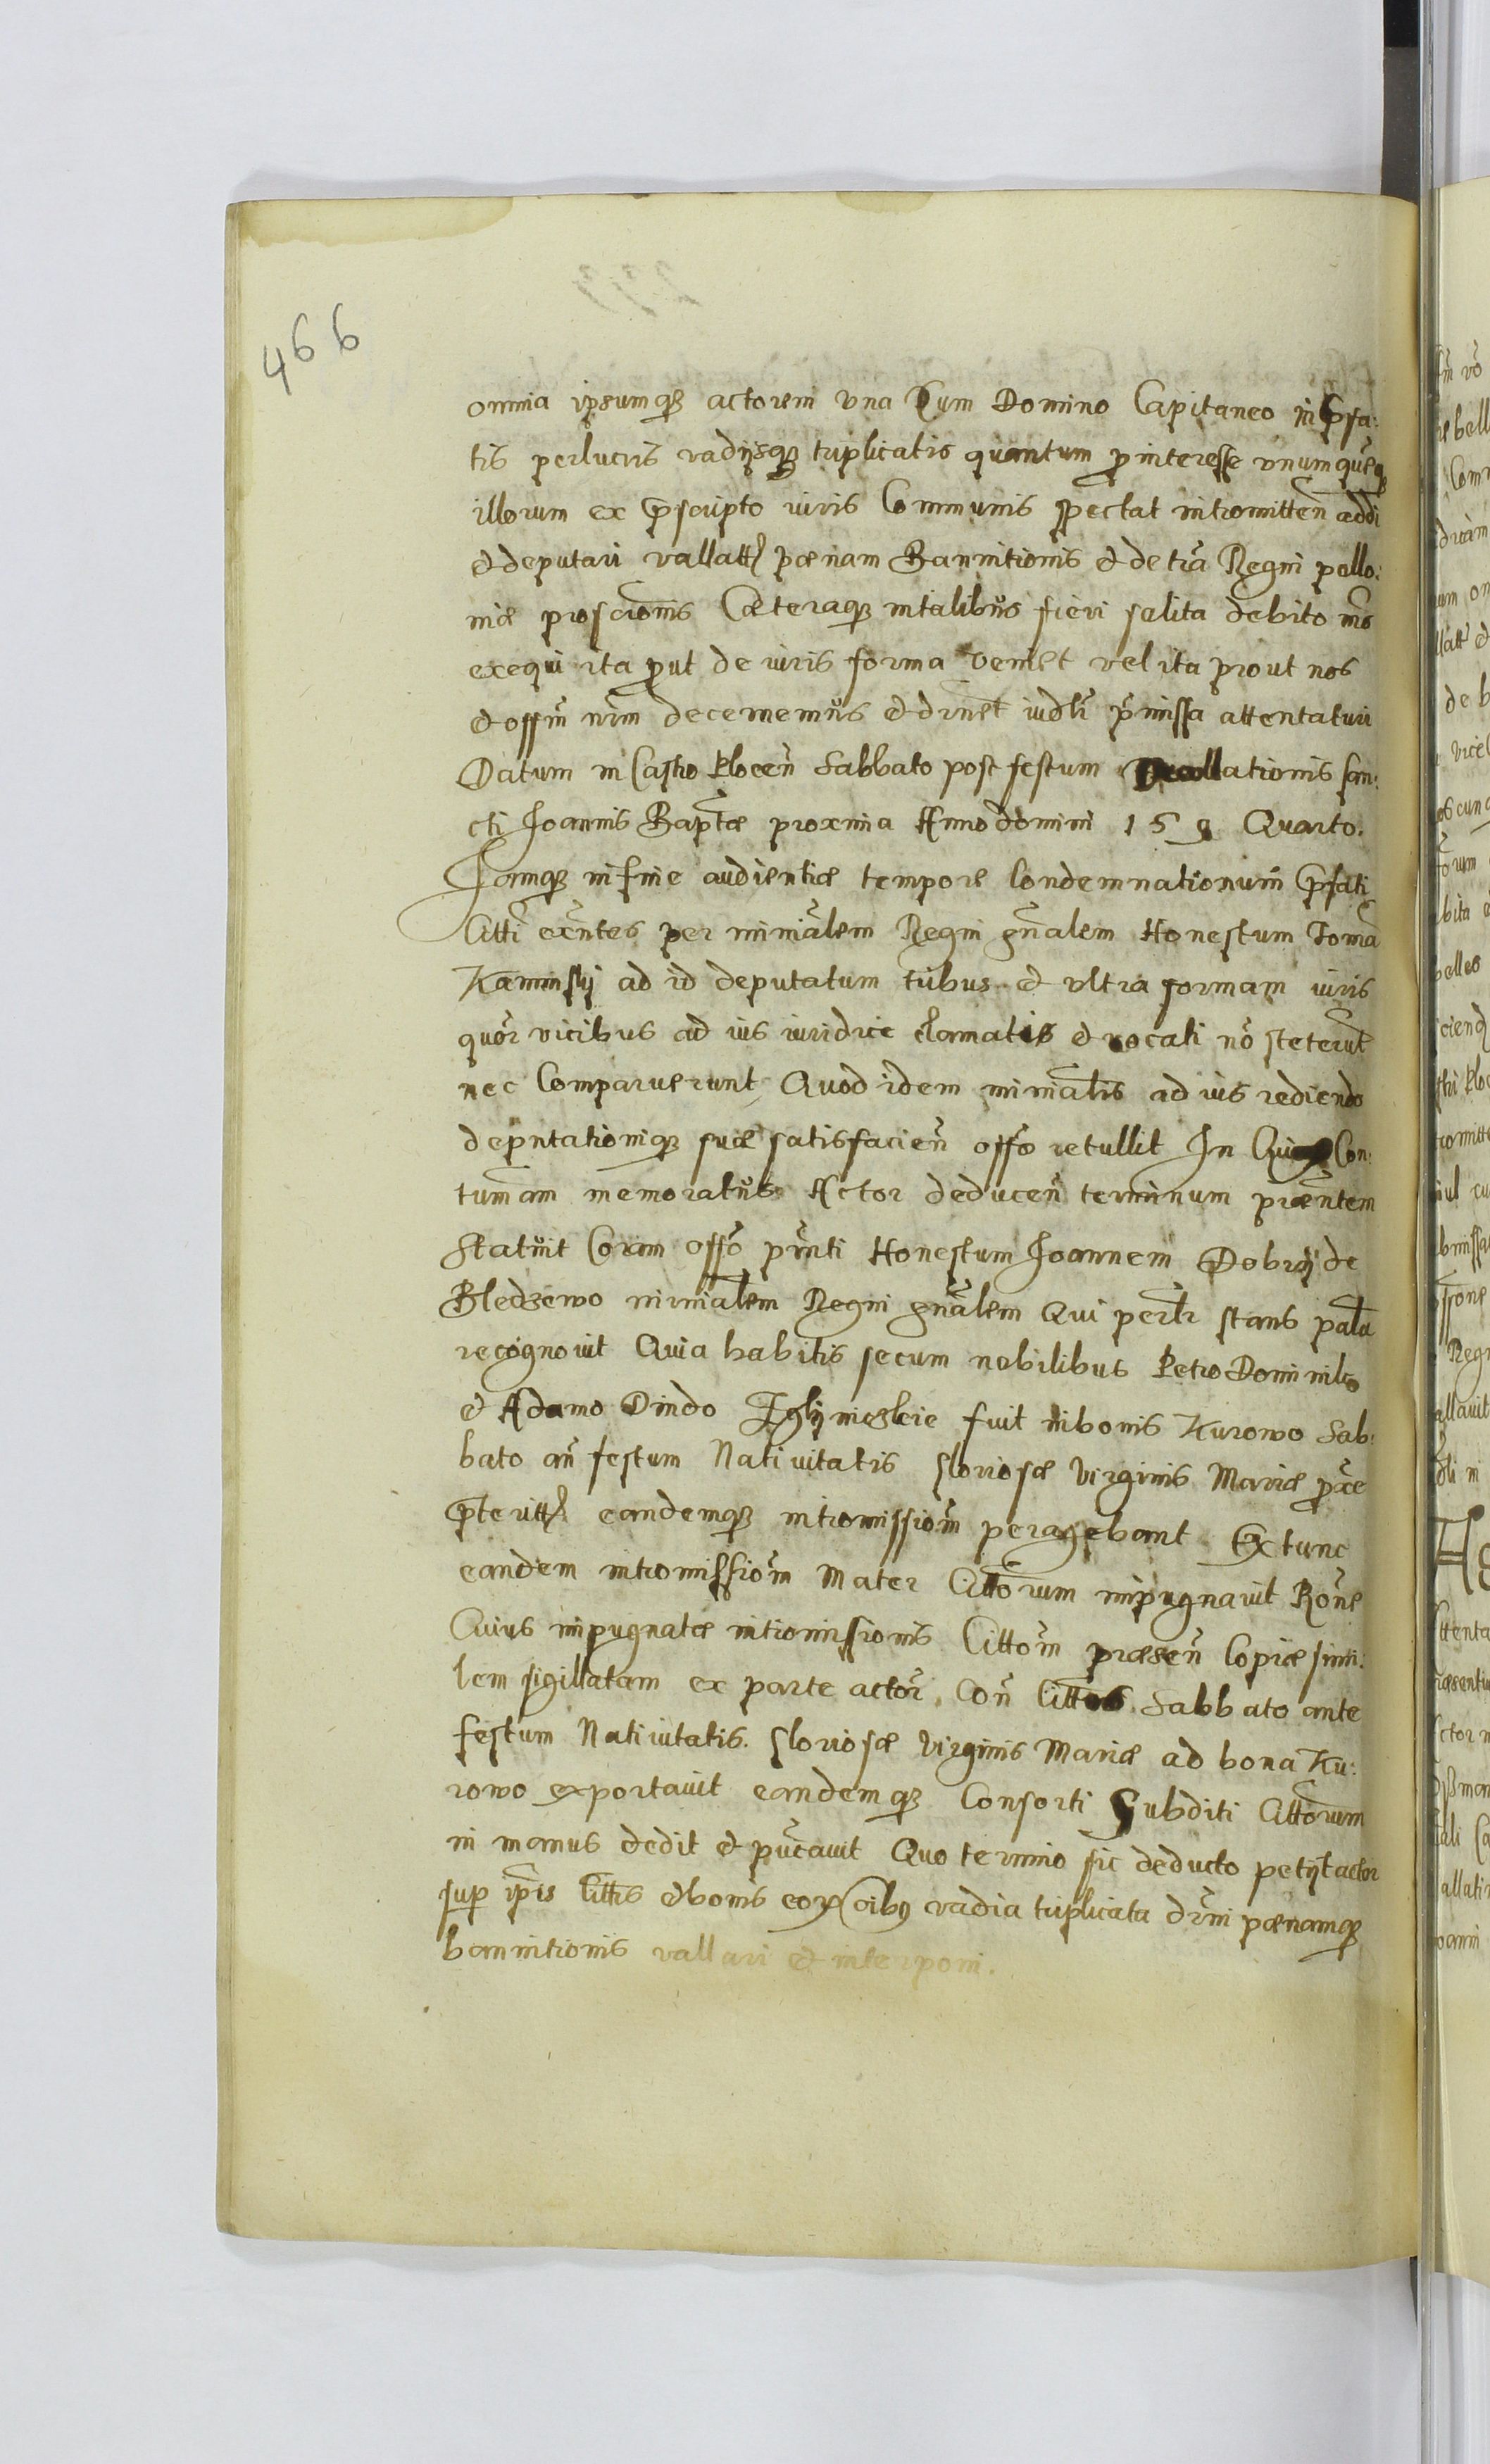 466
omnia ipsumq₃ actorem vna Cum Domino Capitaneo in p̄fa:
tis perlucris vadijsq₃ triplicatis quantum p̄ interesse vnumquēq₃
illorum ex p̄scripto iuris Communis spectat intromitteñ addi
& deputari vallatt₃ pœnam Bannitionis & de tr̄a Regni pollo:
niæ proscrionis Cæteraq₃ in talibūs fieri solita debito mō
exequi ita p̄ut de iuris forma veniet vel ita prout nos
& offm̄ nr̄m decernemūs & drnēt iudlr̄ p̄missa attentaturi
Datum in Castro Ploceñ Sabbato post festum Decollationis San:
cti Joannis Baptæ proxima Anno domini 159 Quarto.
Jamq₃ in fine audientiæ tempore Condemnationum p̄fati
Citti exn̄tes per minialem Regni gn̄alem Honestum Toma
Kaminskij ad id deputatum tribus & vltra formam iuris
quōr vicibus ad ius iuridice clamatis & vocati nō steterūt
nec Comparuerunt Quod idem minialis ad ius rediendo
depntationiq₃ suæ satisfacieñ offo retullit In Quor Con:
tumam memoratūs Actor deduceñ terminum præn̄tem
Statūit Coram offō p̄nti Honestum Joannem Dobrij de
Bledzewo minialem Regni gn̄alem Qui perlr̄ stans pala
recognovit Quia habitis secum nobilibus Petro Dominiko
& Adamo Dindo Zglijnieskie fuit in bonis Kurowo Sab:
bato añ festum Nativitatis Gloriosæ Virginis Mariæ p̄xe
p̄teritt₃ eandemq₃ intromissiom̄ peragebant Ex tunc
eandem intromissiom̄ Mater Cittorum impugnavit Rōne
Cuius impugnatæ intromissionis Cittom̄ præseñ Copiæ simi:
lem sigillatam ex parte actor̄ Coñ Cittos Sabbato ante
festum Nativitatis Gloriosæ Virginis Mariæ ad bona Ku:
rowo exportavit eandemq₃ Consorti Subditi Cittorum
in manus dedit & pūcavit Quo termino sic deducto petijt actor
sup̄ ip̄is Cittis & bonis eoꝝ oibꝰ vadia triplicata drm̄ pœnamq₃
bannitionis vallari & interponi.